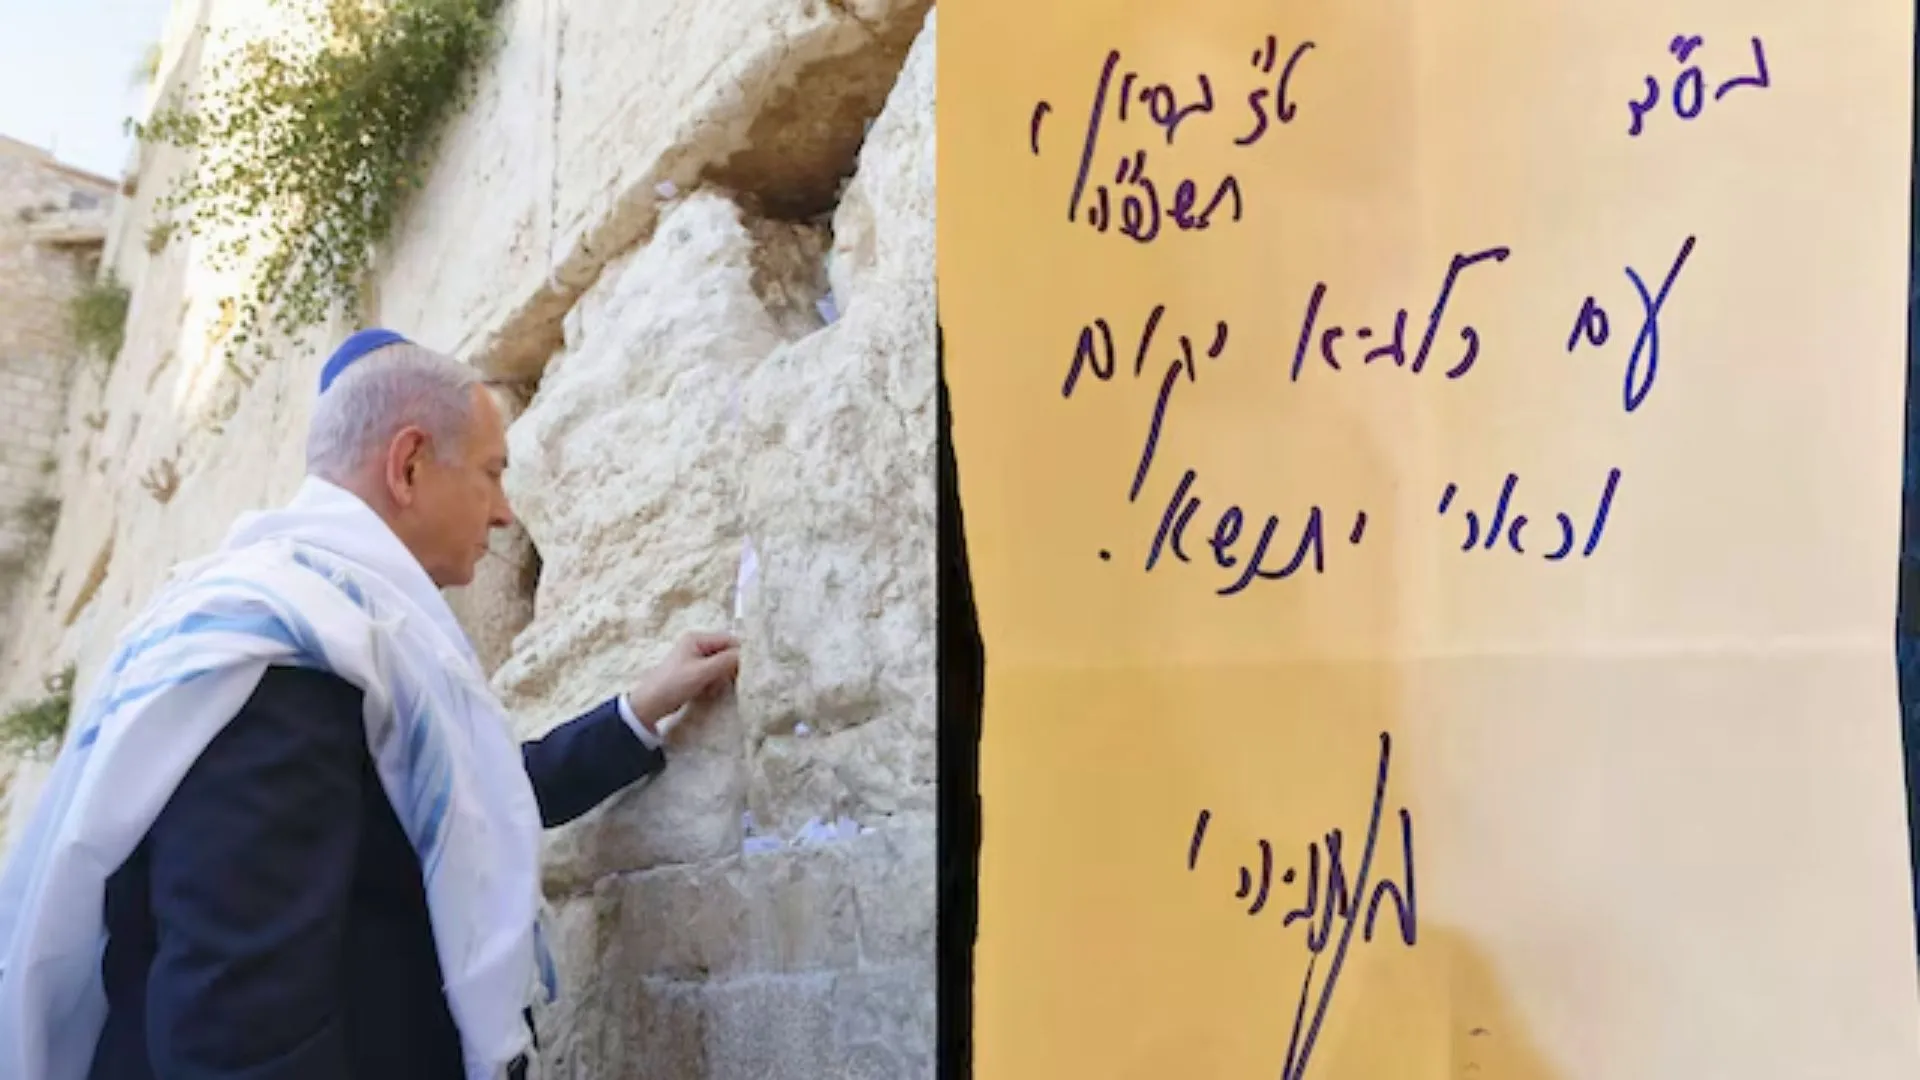 בס"ד ט"ז בסיון
תשפ"ה
עם כלביא יקום
וכארי יתנשא.
ב נתניהו